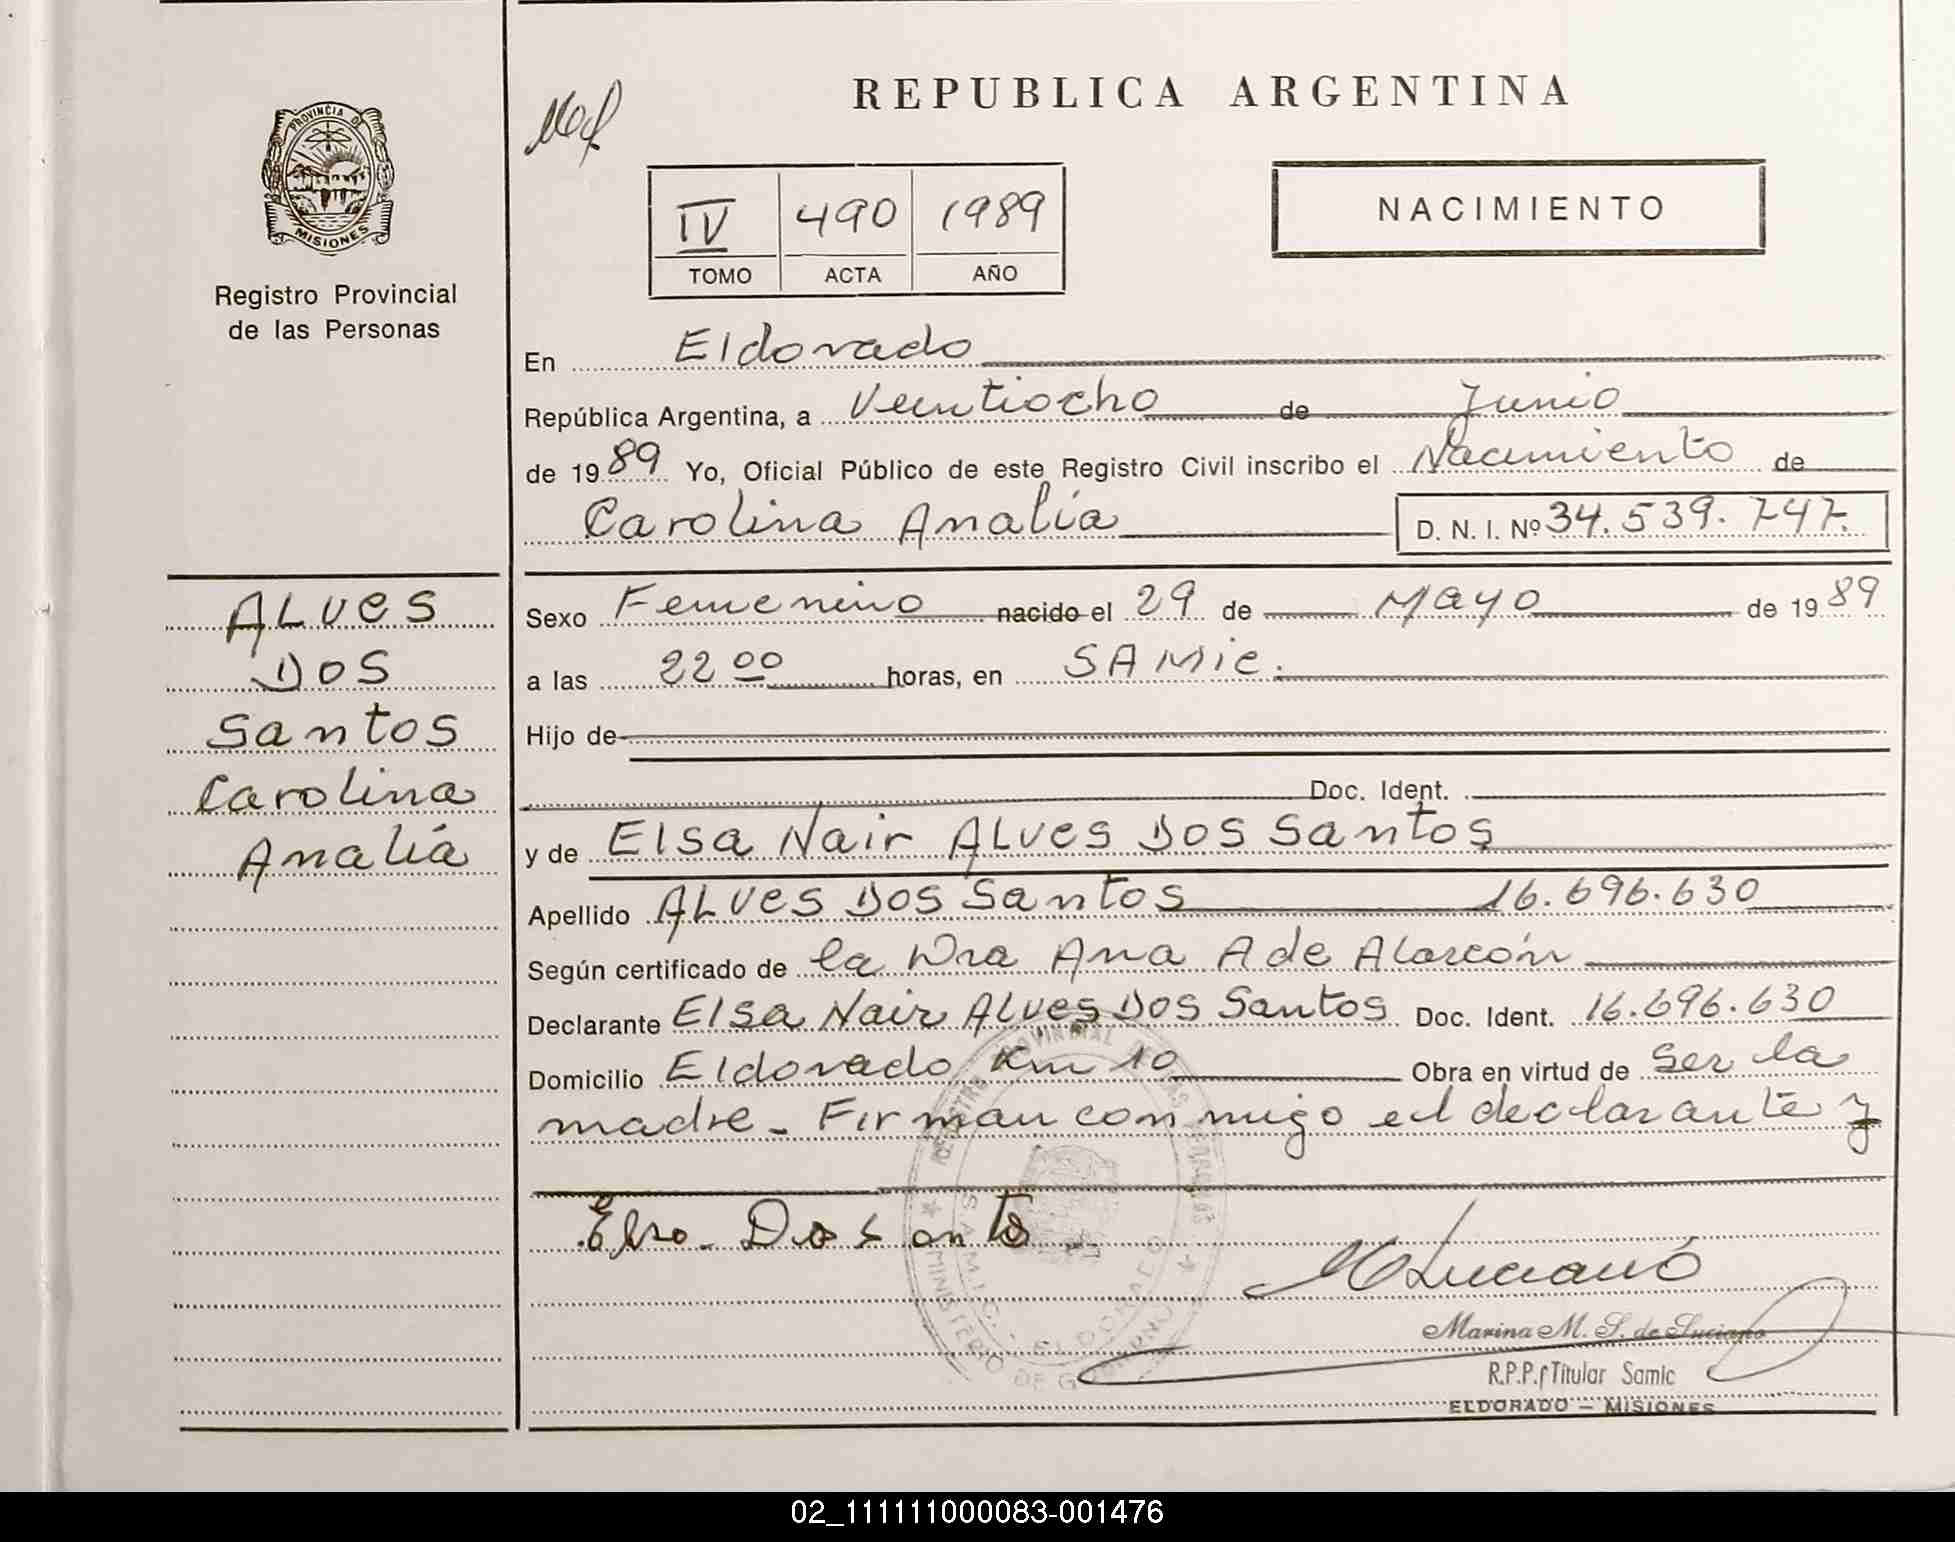 PROVINCIA DE
MISIONES
Registro Provincial
de las Personas
REPUBLICA ARGENTINA
IV 490 1989
TOMO ACTA AÑO
NACIMIENTO
En Eldorado
República Argentina, a Veintiocho de Junio
de 1989 Yo, Oficial Público de este Registro Civil inscribo el Nacimiento de
Carolina Analía D. N. I. Nº 34.539.747.
ALVES
DOS
Santos
Carolina
Analía
Sexo Femenino nacido el 29 de Mayo de 1989
a las 22 00 horas, en SAMIC.
Hijo de
Doc. Ident.
y de Elsa Nair ALVES DOS Santos
Apellido ALVES DOS Santos 16.696.630
Según certificado de la Dra Ana A de Alarcón
Declarante Elsa Nair ALVES DOS Santos Doc. Ident. 16.696.630
Domicilio Eldorado Km 10 Obra en virtud de ser la
madre - Firman conmigo el declarante y
Elsa Dos Santo
M Luciano
REGISTRO PROVINCIAL DE LAS PERSONAS
S.A.M.I.C. - ELDORADO
MINISTERIO DE GOBIERNO
Marina M. S. de Luciano
R.P.P. Titular Samic
ELDORADO - MISIONES
02_111111000083-001476